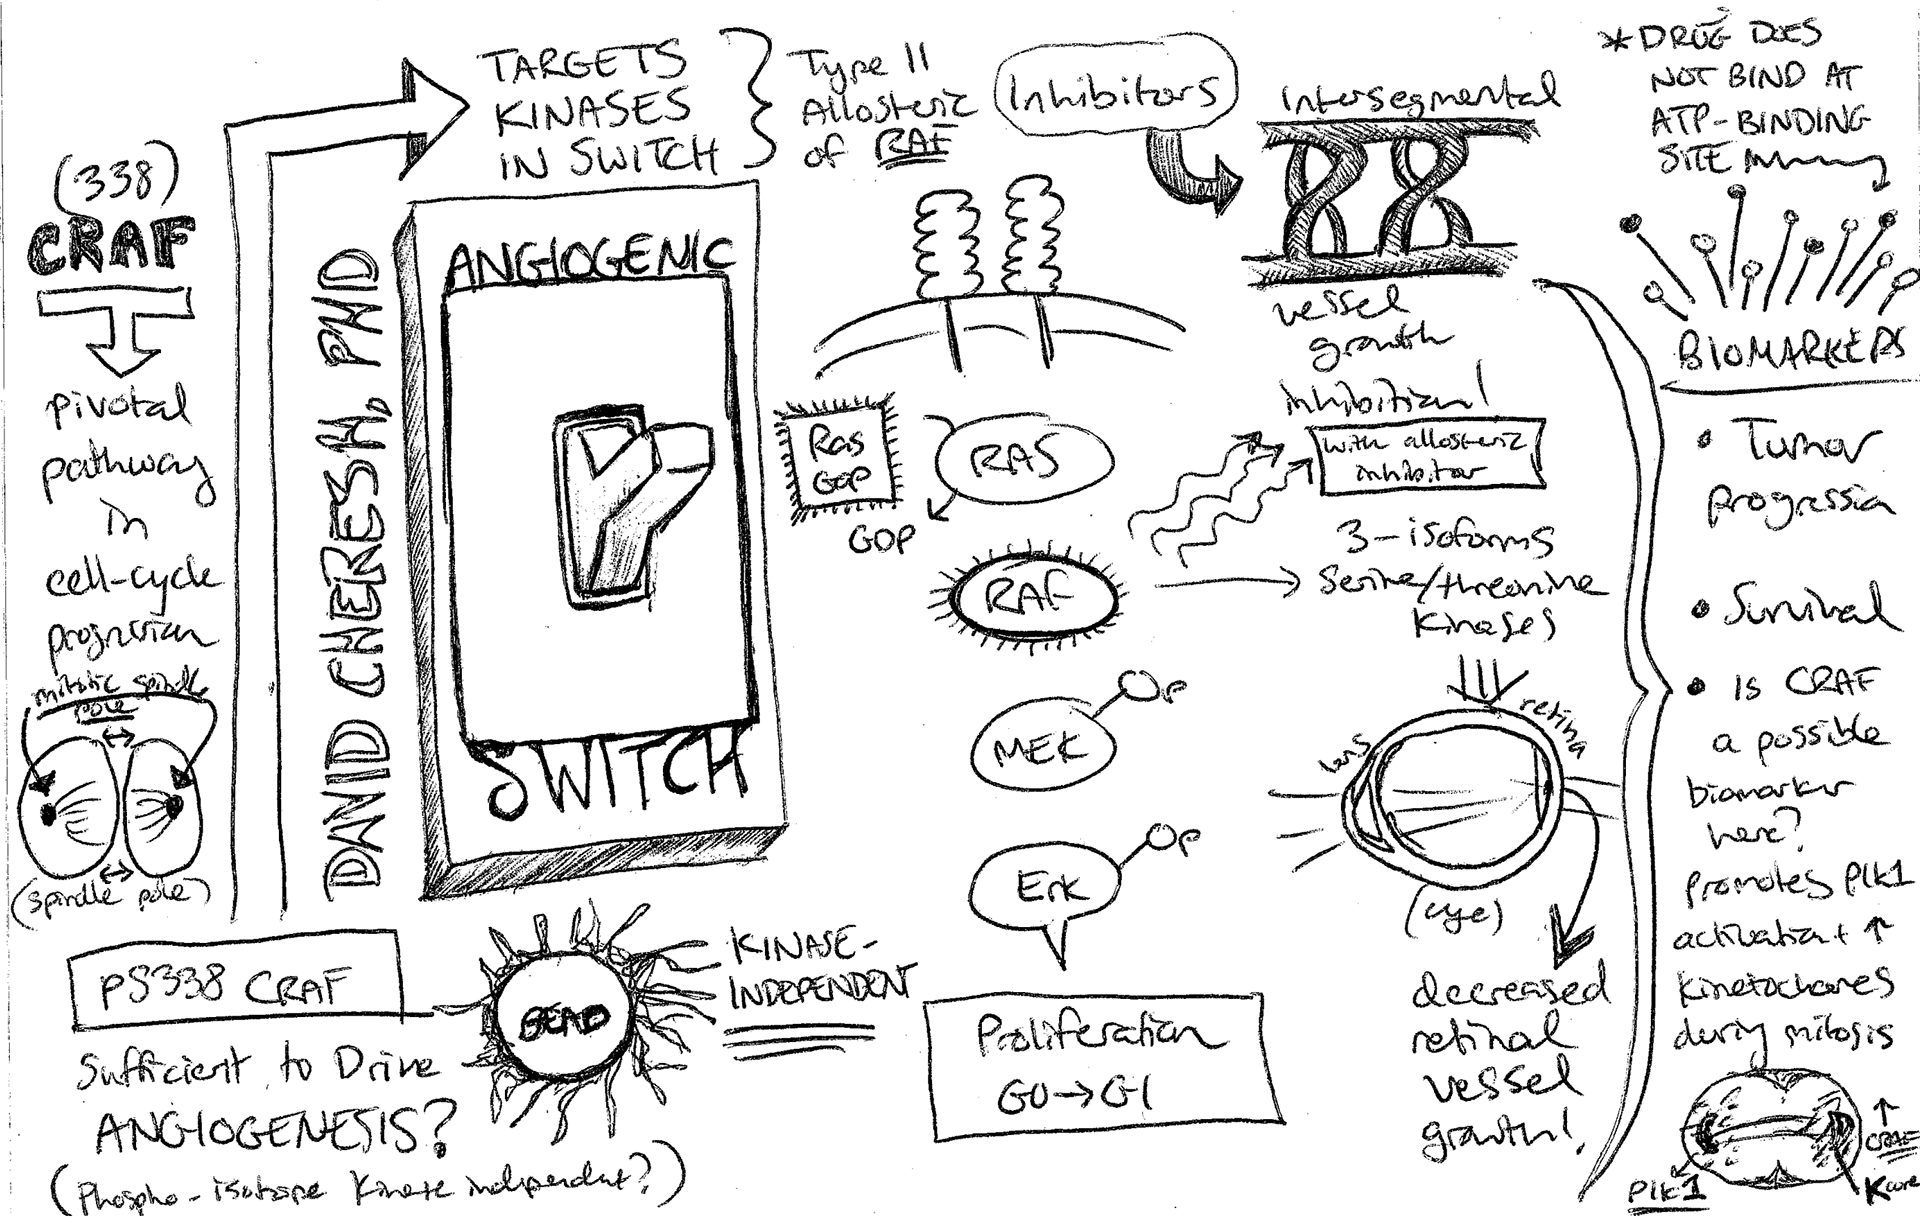 (338)
CRAF
pivotal
pathway
in
cell-cycle
progression
mitotic spindle
pole
(spindle pole)
TARGETS
KINASES
IN SWITCH
Type II
Allosteric
of RAF
Inhibitors
DAVID CHERESH, PHD
ANGIOGENIC
SWITCH
Ras
GDP
RAS
GDP
RAF
MEK
Op
Erk
Op
Proliferation
G0→G1
pS338 CRAF
Sufficient to Drive
ANGIOGENESIS?
(Phospho-isotope Kinase independent?)
BEAD
KINASE-
INDEPENDENT
intersegmental
vessel
growth
inhibition!
with allosteric
inhibitor
3-isoforms
Serine/threonine
Kinases
lens
retina
(eye)
decreased
retinal
vessel
growth!
*DRUG DOES
NOT BIND AT
ATP-BINDING
SITE
BIOMARKERS
• Tumor
progression
• Survival
• IS CRAF
a possible
biomarker
here?
promotes Plk1
activation + ↑
Kinetochores
during mitosis
↑
CRAF
Plk1